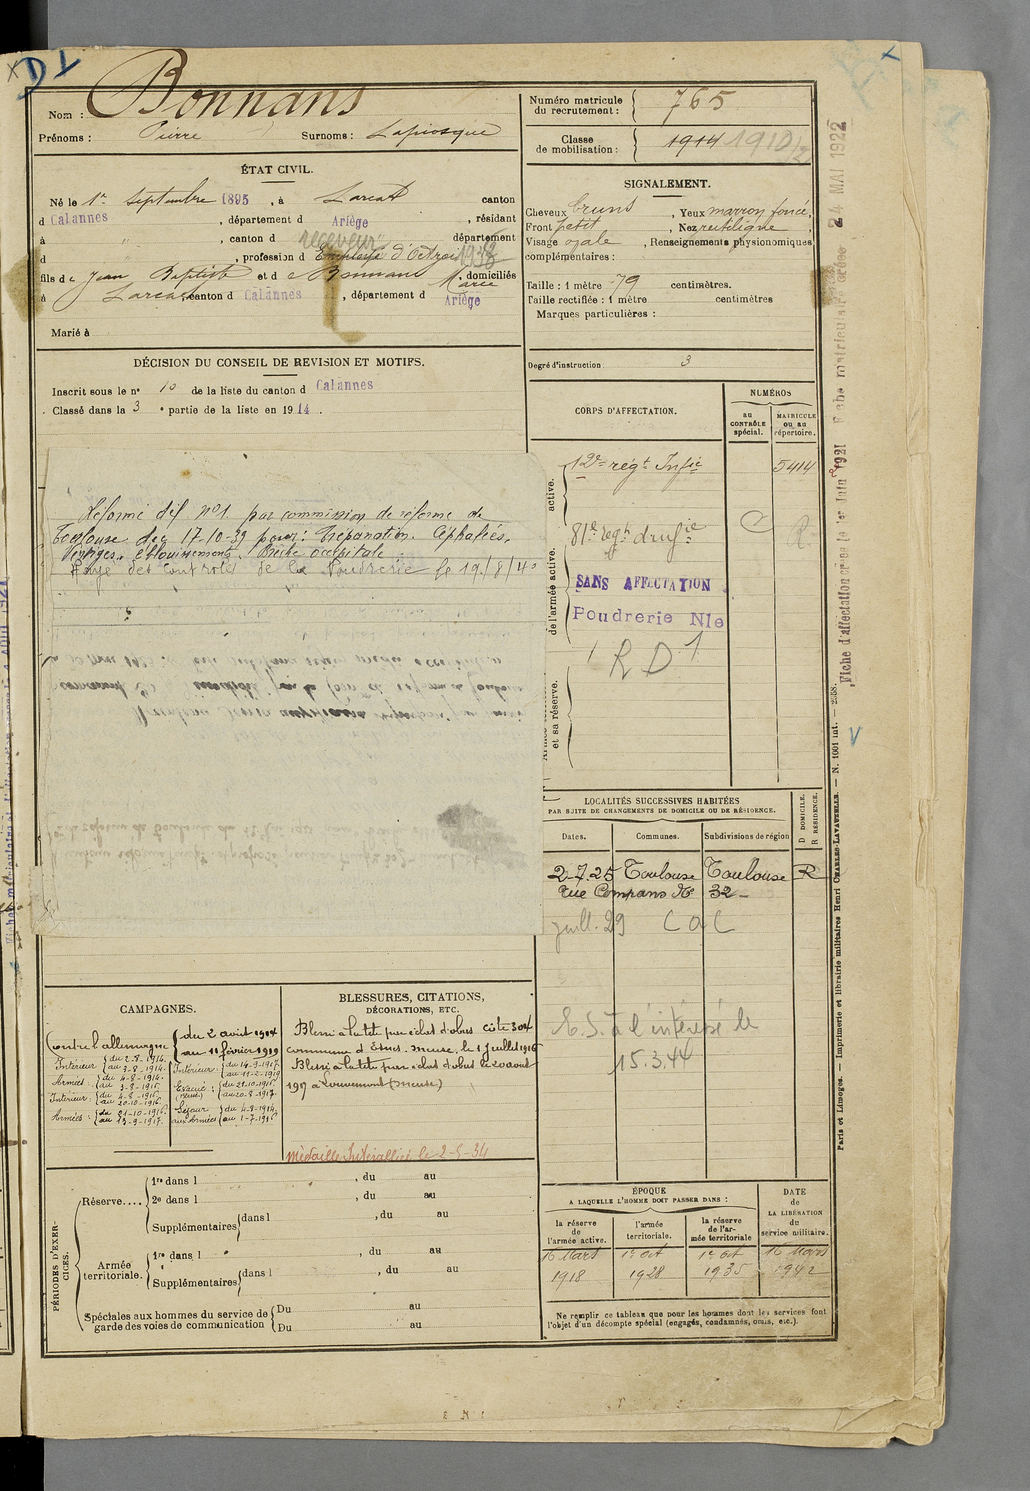 D Y
Nom : Bonnans
Prénoms : Pierre Surnoms : Lapiosque
Numéro matricule du recrutement : 765
Classe de mobilisation : 1914 1910/2
ÉTAT CIVIL.
Né le 1er Septembre 1895, à Larcat canton
d Cabannes, département d Ariège, résidant
à " , canton d " département
d , profession d receveur Employé d'Octroi 1938
fils de Jean Baptiste et d e Bonnans Marie domiciliés
à Larcat, canton d Cabannes, département d Ariège
Marié à
SIGNALEMENT.
Cheveux bruns, Yeux marron foncé,
Front petit, Nez rectiligne,
Visage ovale, Renseignements physionomiques
complémentaires :
Taille : 1 mètre 79 centimètres.
Taille rectifiée : 1 mètre centimètres
Marques particulières :
Degré d'instruction : 3
DÉCISION DU CONSEIL DE REVISION ET MOTIFS.
Inscrit sous le n° 10 de la liste du canton d Cabannes
Classé dans la 3e partie de la liste en 1914.
Réformé déf. n°1 par commission de réforme de
Toulouse du 17-10-39 pour : Trépanation. Céphalées.
Vertiges. éblouissements. Brèche occipitale
Rayé des contrôles de la Poudrerie le 19/8/40
CORPS D'AFFECTATION.
NUMÉROS
au CONTRÔLE spécial.
MATRICULE ou au répertoire.
active.
12e régt Infie 5414
de l'armée active.
81e régt d'infie C R.
SANS AFFECTATION
Poudrerie Nle
R D 1
et sa réserve.
LOCALITÉS SUCCESSIVES HABITÉES
PAR SUITE DE CHANGEMENTS DE DOMICILE OU DE RÉSIDENCE.
Dates. Communes. Subdivisions de région
D DOMICILE. R RÉSIDENCE.
2-7-25 Toulouse Toulouse R
rue Compans No 32
juill. 29 C a C
E.S. à l'intéressé le
15.3.44
CAMPAGNES.
Contre l'allemagne { du 2 août 1914
au 11 février 1919
Intérieur { du 2-8-1914.
au 3-8-1914.
Armées : { du 4-8-1914.
au 3-8-1916.
Intérieur : { du 4-8-1916.
au 20-10-1916.
Armées : { du 21-10-1916.
au 13-9-1917.
Intérieur : { du 14-9-1917.
au 11-2-1919
Evacué : { du 21-10-1916
au 20-8-1917.
Séjour aux Armées { du 4-8-1914.
au 1-7-1916
BLESSURES, CITATIONS,
DÉCORATIONS, ETC.
Blessé à la tête par éclat d'obus côte 304
commune d'Esnes. meuse. le 1 juillet 1916
Blessé à la tête par éclat d'obus le 20 août
1917 à Louvemont (Meuse)
médaille Interalliée le 2-5-34
PÉRIODES D'EXERCICES.
Réserve.... 1re dans l , du au
2e dans l , du au
Supplémentaires dans l , du au
Armée territoriale. 1re dans l , du au
Supplémentaires dans l , du au
Spéciales aux hommes du service de garde des voies de communication Du au
Du au
ÉPOQUE
A LAQUELLE L'HOMME DOIT PASSER DANS :
la réserve de l'armée active.
l'armée territoriale.
la réserve de l'armée territoriale
DATE DE LA LIBÉRATION du service militaire.
16 Mars 1918
1er Oct 1928
1er Oct 1935
16 Mars 1942
Ne remplir ce tableau que pour les hommes dont les services font
l'objet d'un décompte spécial (engagés, condamnés, omis, etc.).
Paris et Limoges. — Imprimerie et librairie militaires Henri CHARLES-LAVAUZELLE. — N. 1001 int. — 2358.
Fiche d'affectation créée le 1er Juin 1921 Fiche matriculaire créée 24 MAI 1922